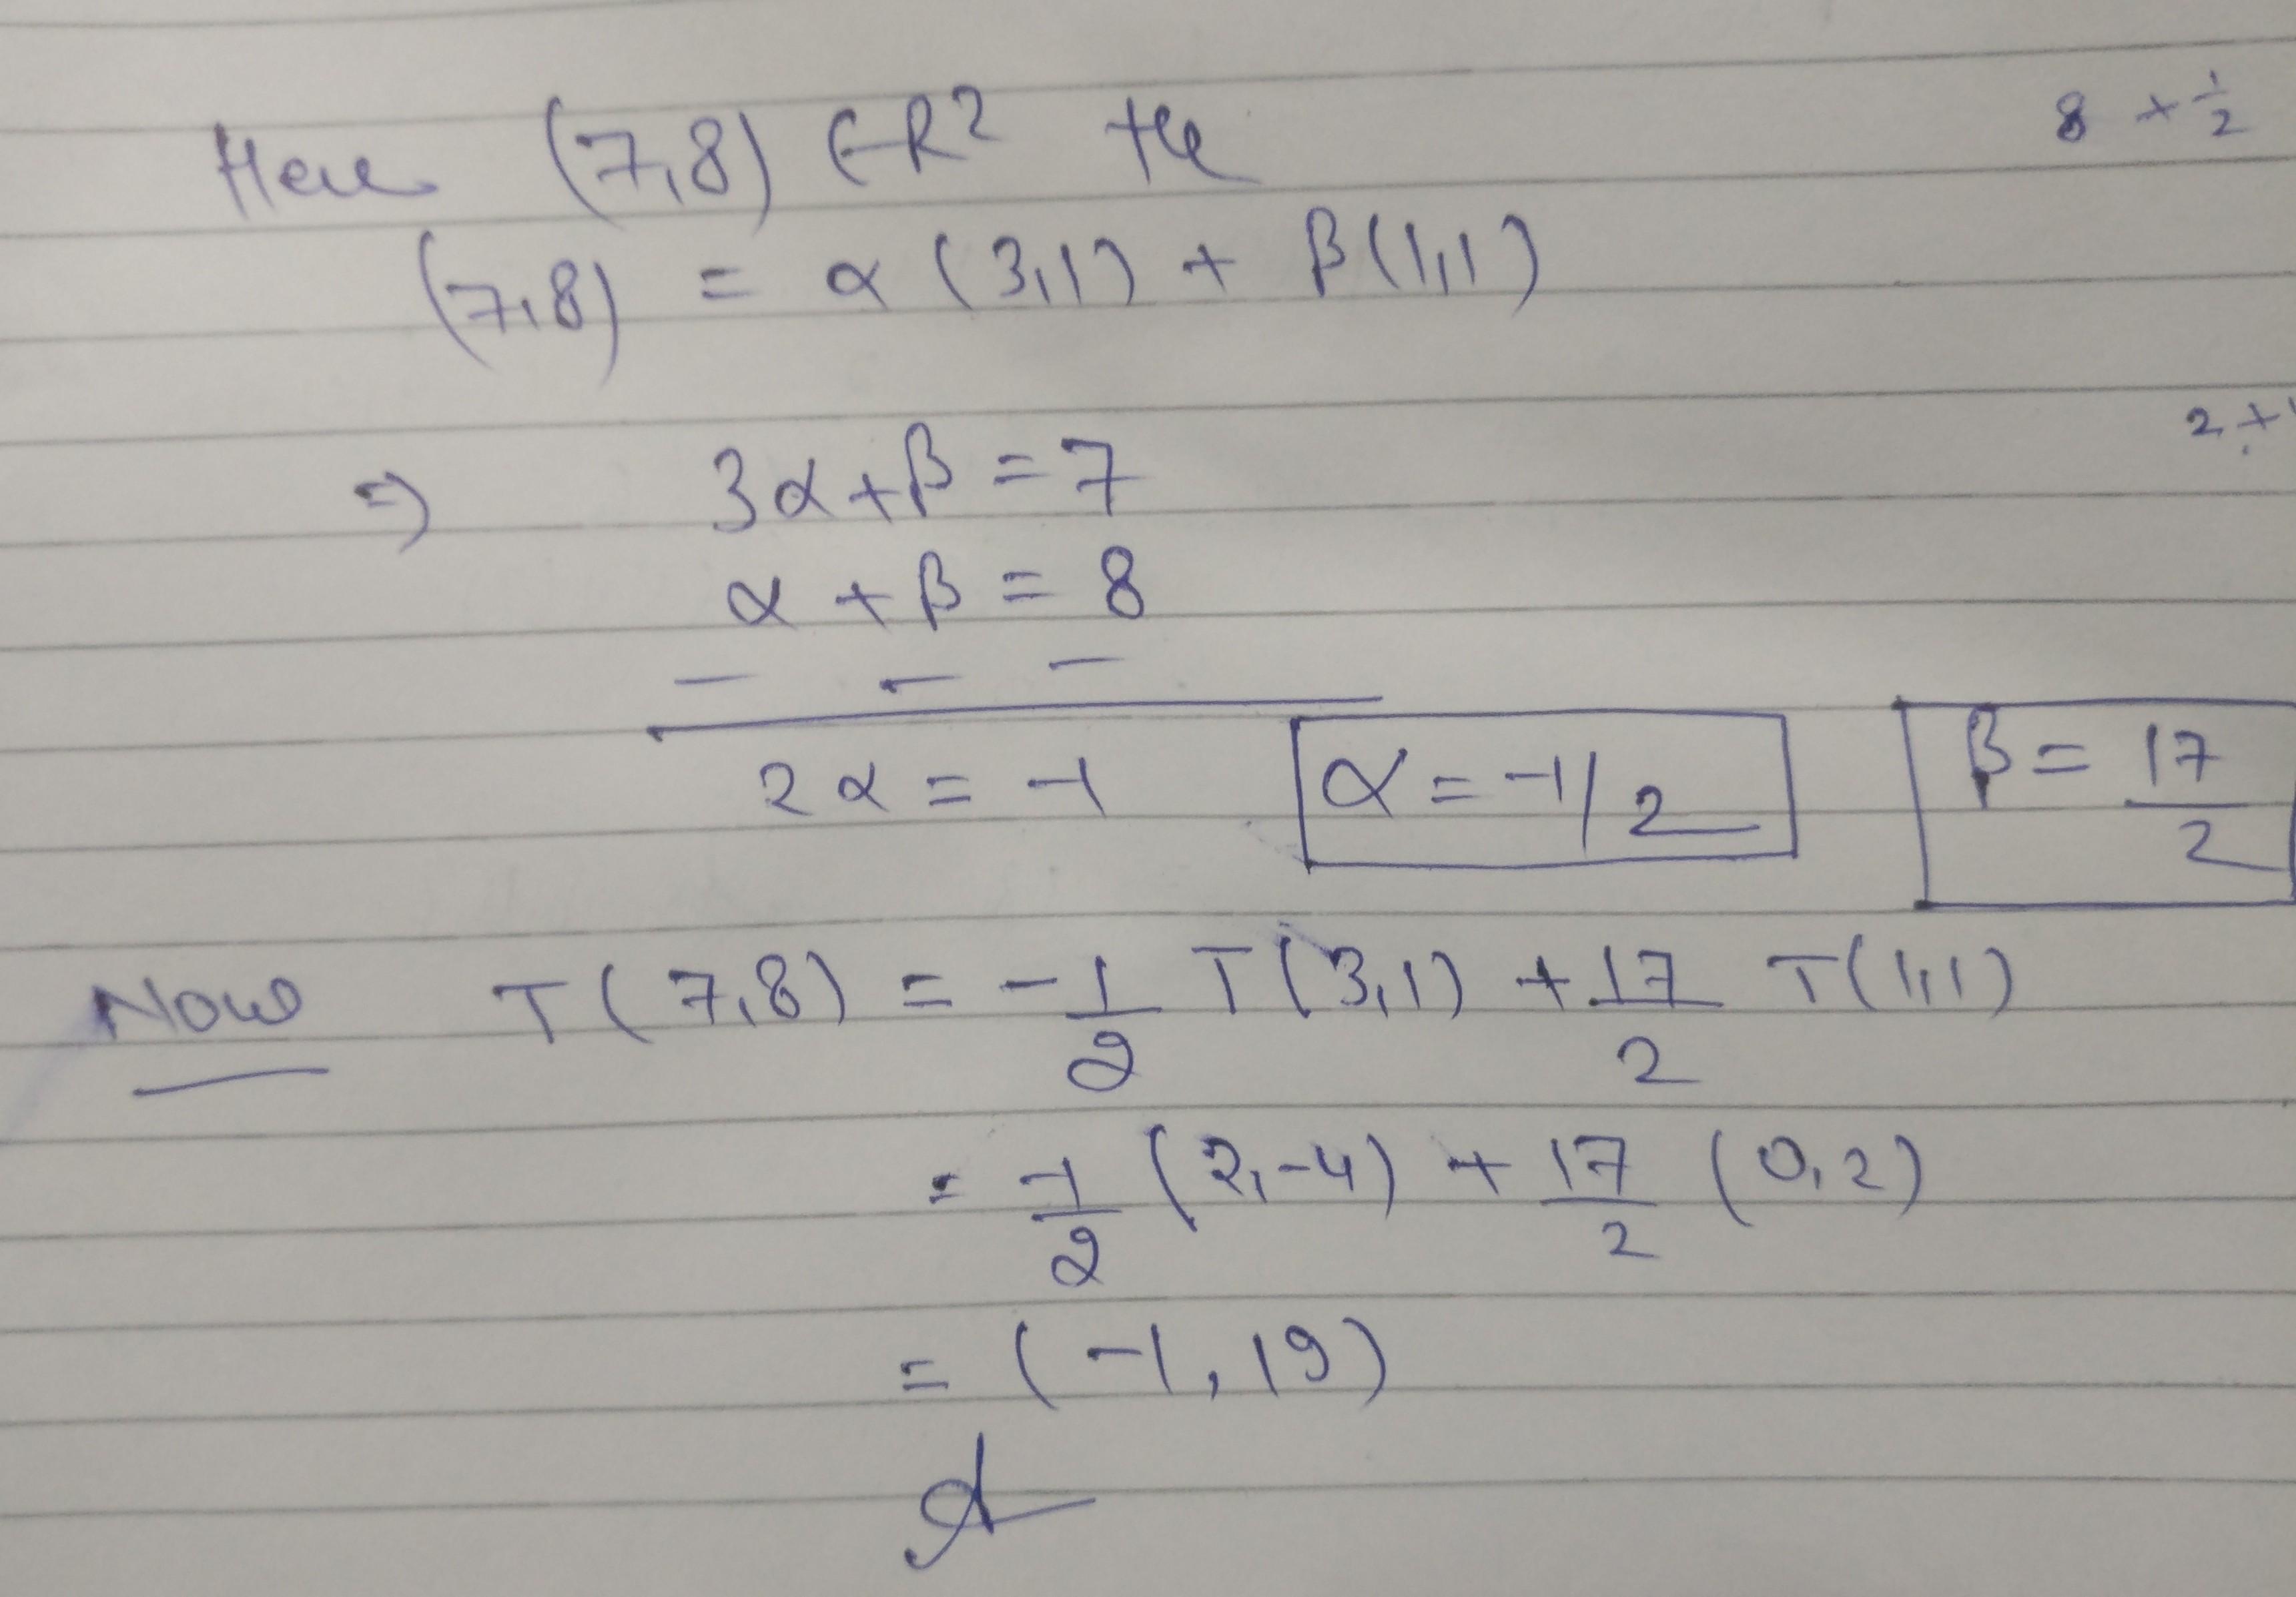 Here (7,8) ∈ R² the
8 + 1/2
(7,8) = α (3,1) + β(1,1)
2 +
⇒ 3α + β = 7
α + β = 8
− − −
2α = -1 α = -1/2 β = 17/2
Now T(7,8) = -1/2 T(3,1) + 17/2 T(1,1)
= -1/2 (2,-4) + 17/2 (0,2)
= (-1, 19)